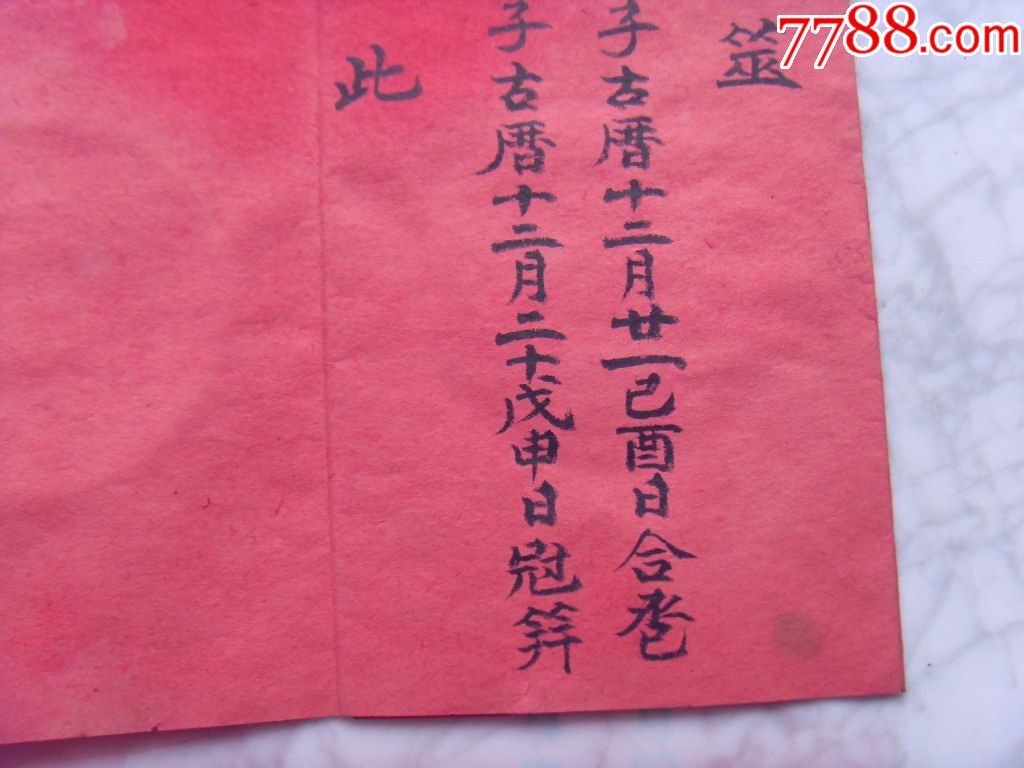 7788.com
筮
子古曆十二月廿一己酉日合卺
子古曆十二月二十戊申日冠笄
此